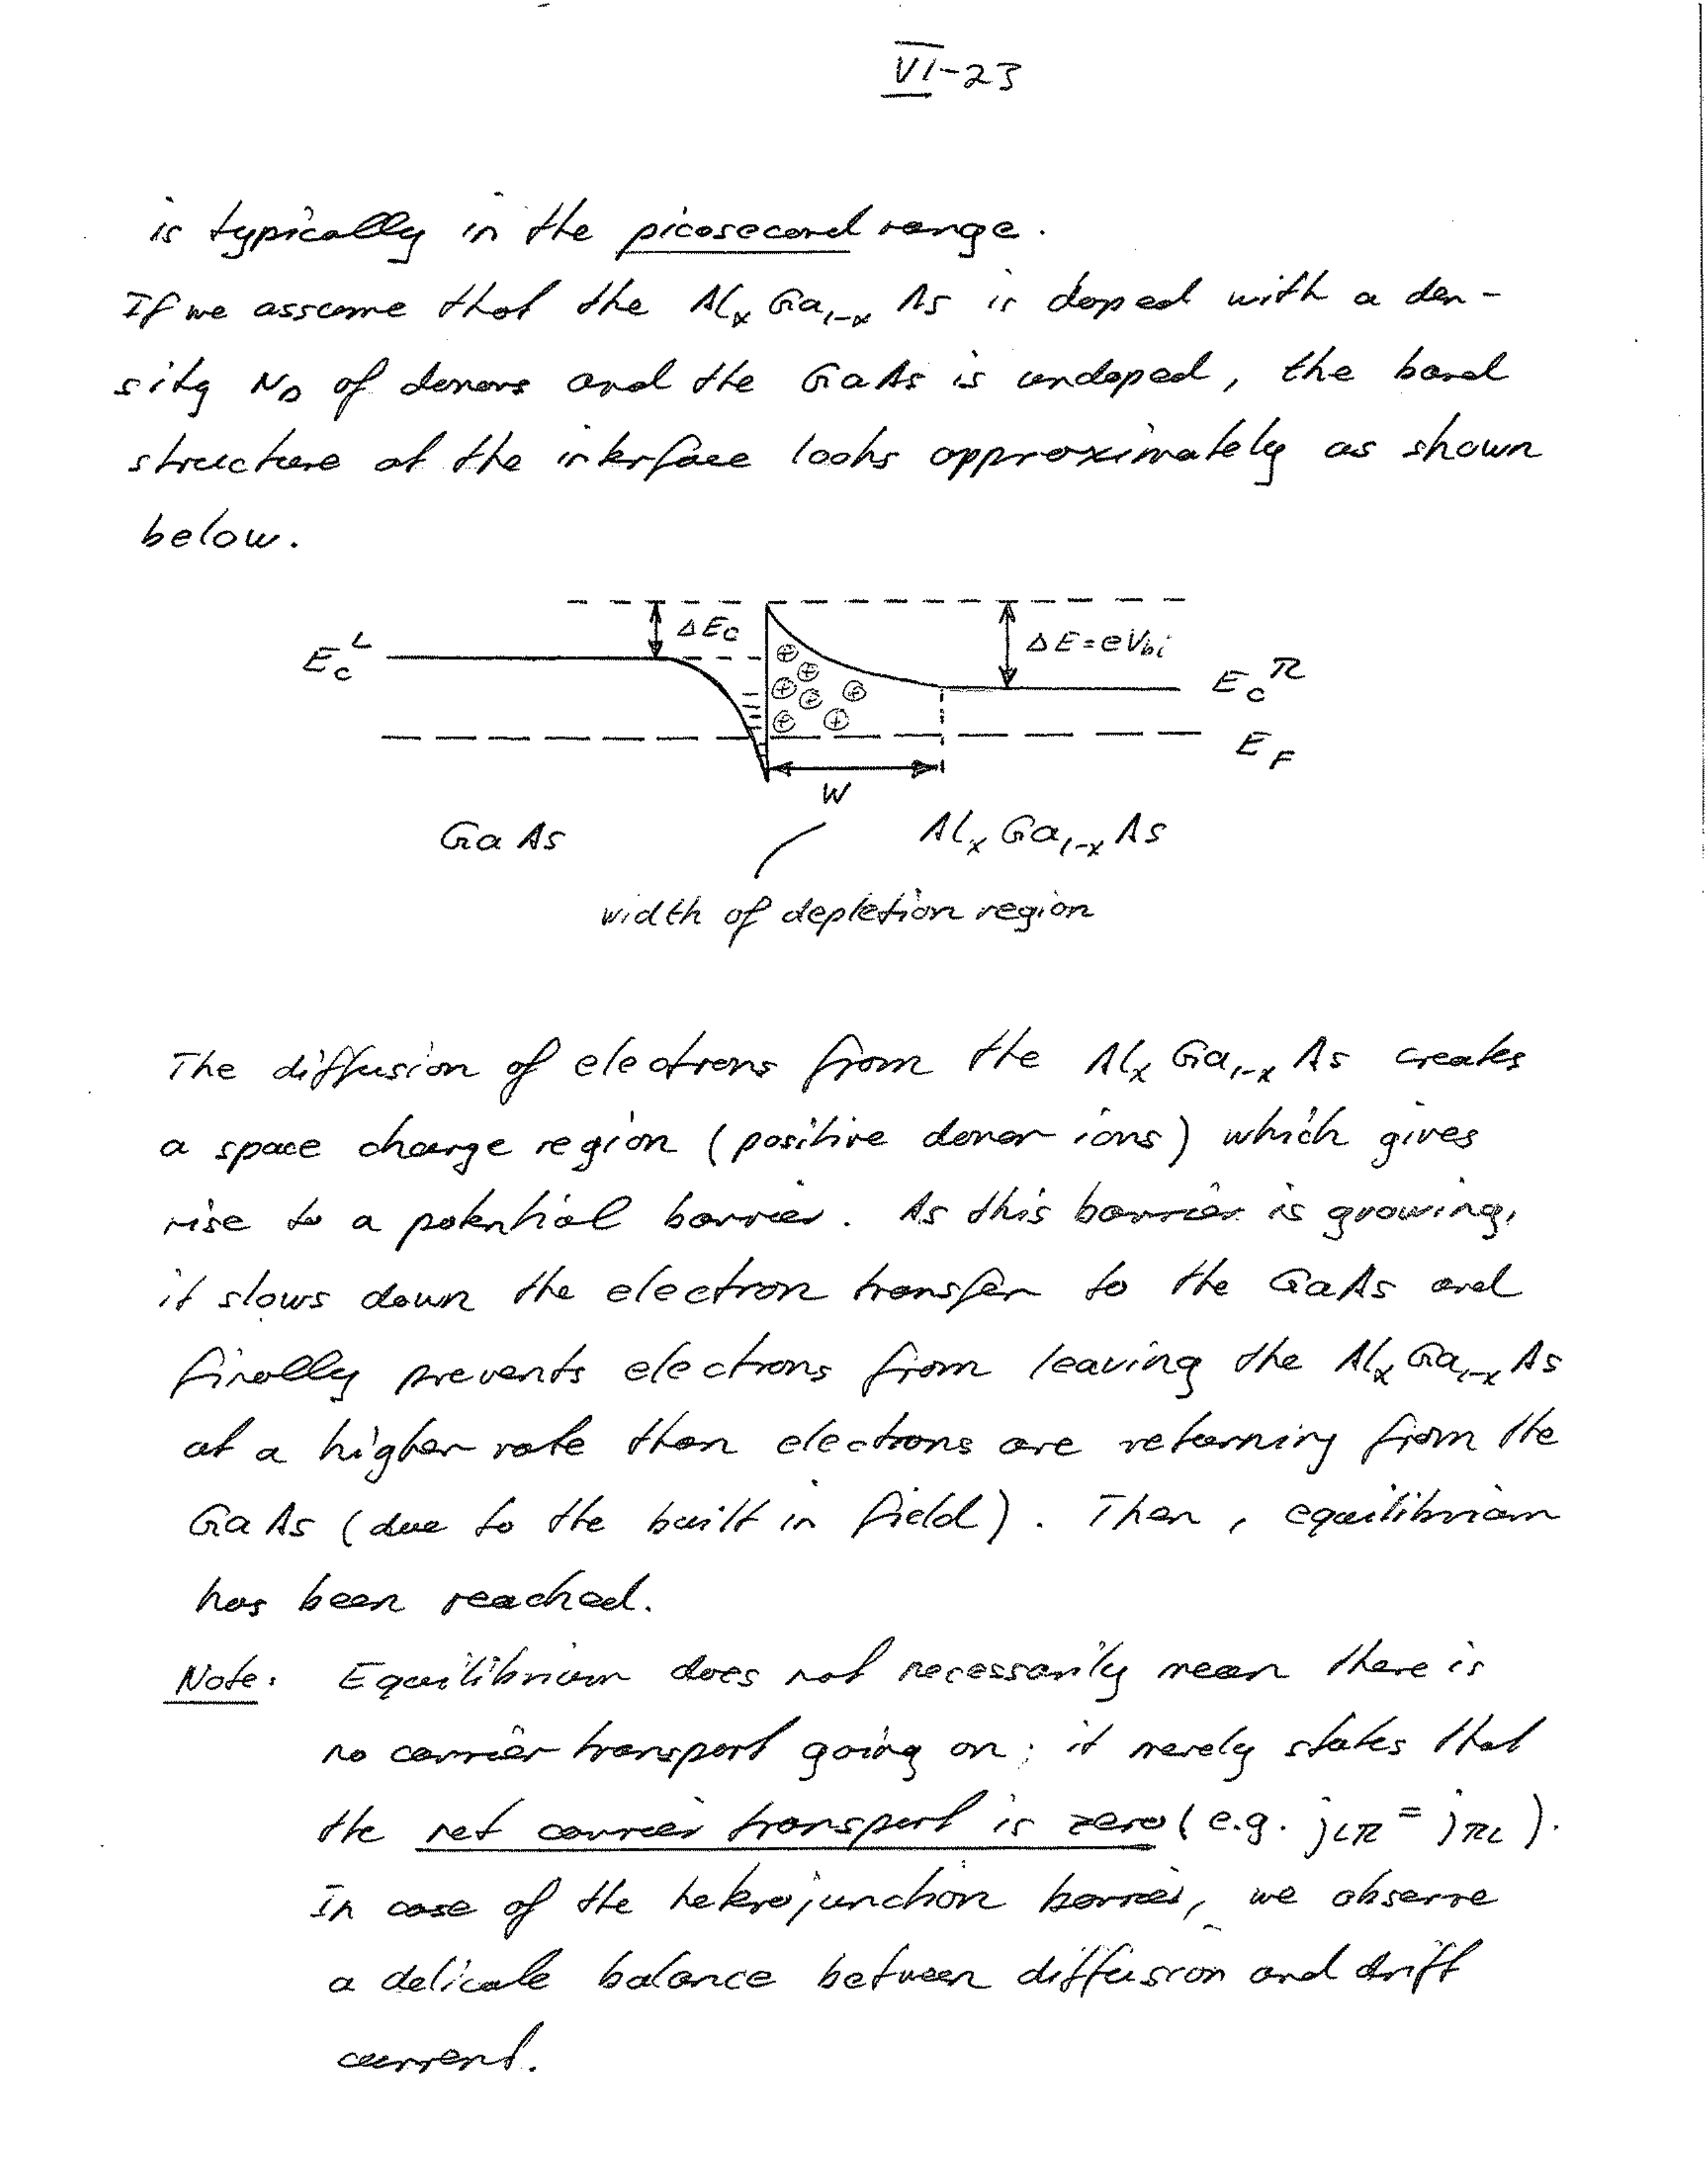 VI-23
is typically in the picosecond range.
If we assume that the AlₓGa₁₋ₓAs is doped with a den-
sity N_D of donors and the GaAs is undoped, the band
structure at the interface looks approximately as shown
below.
ΔE_C
ΔE = eV_bi
E_C^L
E_C^R
E_F
W
GaAs
AlₓGa₁₋ₓAs
width of depletion region
The diffusion of electrons from the AlₓGa₁₋ₓAs creates
a space charge region (positive donor ions) which gives
rise to a potential barrier. As this barrier is growing,
it slows down the electron transfer to the GaAs and
finally prevents electrons from leaving the AlₓGa₁₋ₓAs
at a higher rate than electrons are returning from the
GaAs (due to the built in field). Then, equilibrium
has been reached.
Note: Equilibrium does not necessarily mean there is
no carrier transport going on; it merely states that
the net carrier transport is zero (e.g. j_LR = j_RL).
In case of the heterojunction barrier, we observe
a delicate balance between diffusion and drift
current.